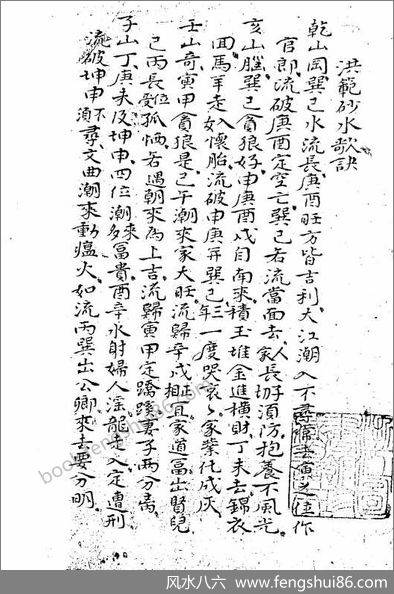 洪範砂水歌訣
乾山罔巽巳水流長庚酉旺方皆吉利大江潮入不尋常去寅之位作
官郎流破庚酉定空亡巽巳右流當面去人家長切須防抱養不風光
亥山臘巽巳貪狼好申庚酉戌自南來積玉堆金進橫財丁未去錦衣
回馬羊走如入懷胎流破申庚并巽巳三年一度哭哀哀家業化成灰
壬山奇寅甲貪狼是巳午潮來家大旺流歸辛戌相宜家道富出賢兒
巳丙長位受孤恓若遇朝來為上吉流歸寅甲定蹺蹊妻子兩分离
子山丁庚未及坤申四位潮來多富貴酉辛水射婦人淫龍走入定遭刑
流破坤申不須尋文曲潮來動瘟火如流丙巽出公卿來去要分明
book.fengshui86.com
风水八六 www.fengshui86.com